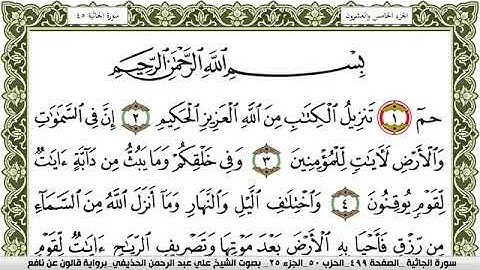 سورة الجاثية ٤٥ الجزء الخامس والعشرون
بِسْمِ اللَّهِ الرَّحْمَٰنِ الرَّحِيمِ
حمٓ ١ تَنزِيلُ الْكِتَابِ مِنَ اللَّهِ الْعَزِيزِ الْحَكِيمِ ٢ إِنَّ فِي السَّمَٰوَٰتِ
وَالْأَرْضِ لَآيَاتٍ لِّلْمُؤْمِنِينَ ٣ وَفِي خَلْقِكُمْ وَمَا يَبُثُّ مِن دَآبَّةٍ ءَايَٰتٌ
لِّقَوْمٍ يُوقِنُونَ ٤ وَاخْتِلَٰفِ الَّيْلِ وَالنَّهَارِ وَمَا أَنزَلَ اللَّهُ مِنَ السَّمَآءِ
مِن رِّزْقٍ فَأَحْيَا بِهِ الْأَرْضَ بَعْدَ مَوْتِهَا وَتَصْرِيفِ الرِّيَٰحِ ءَايَٰتٌ لِّقَوْمٍ
سورة الجاثية _الصفحة ٤٩٩_الحزب ٥٠_الجزء ٢٥_ بصوت الشيخ علي عبد الرحمن الحذيفي_برواية قالون عن نافع